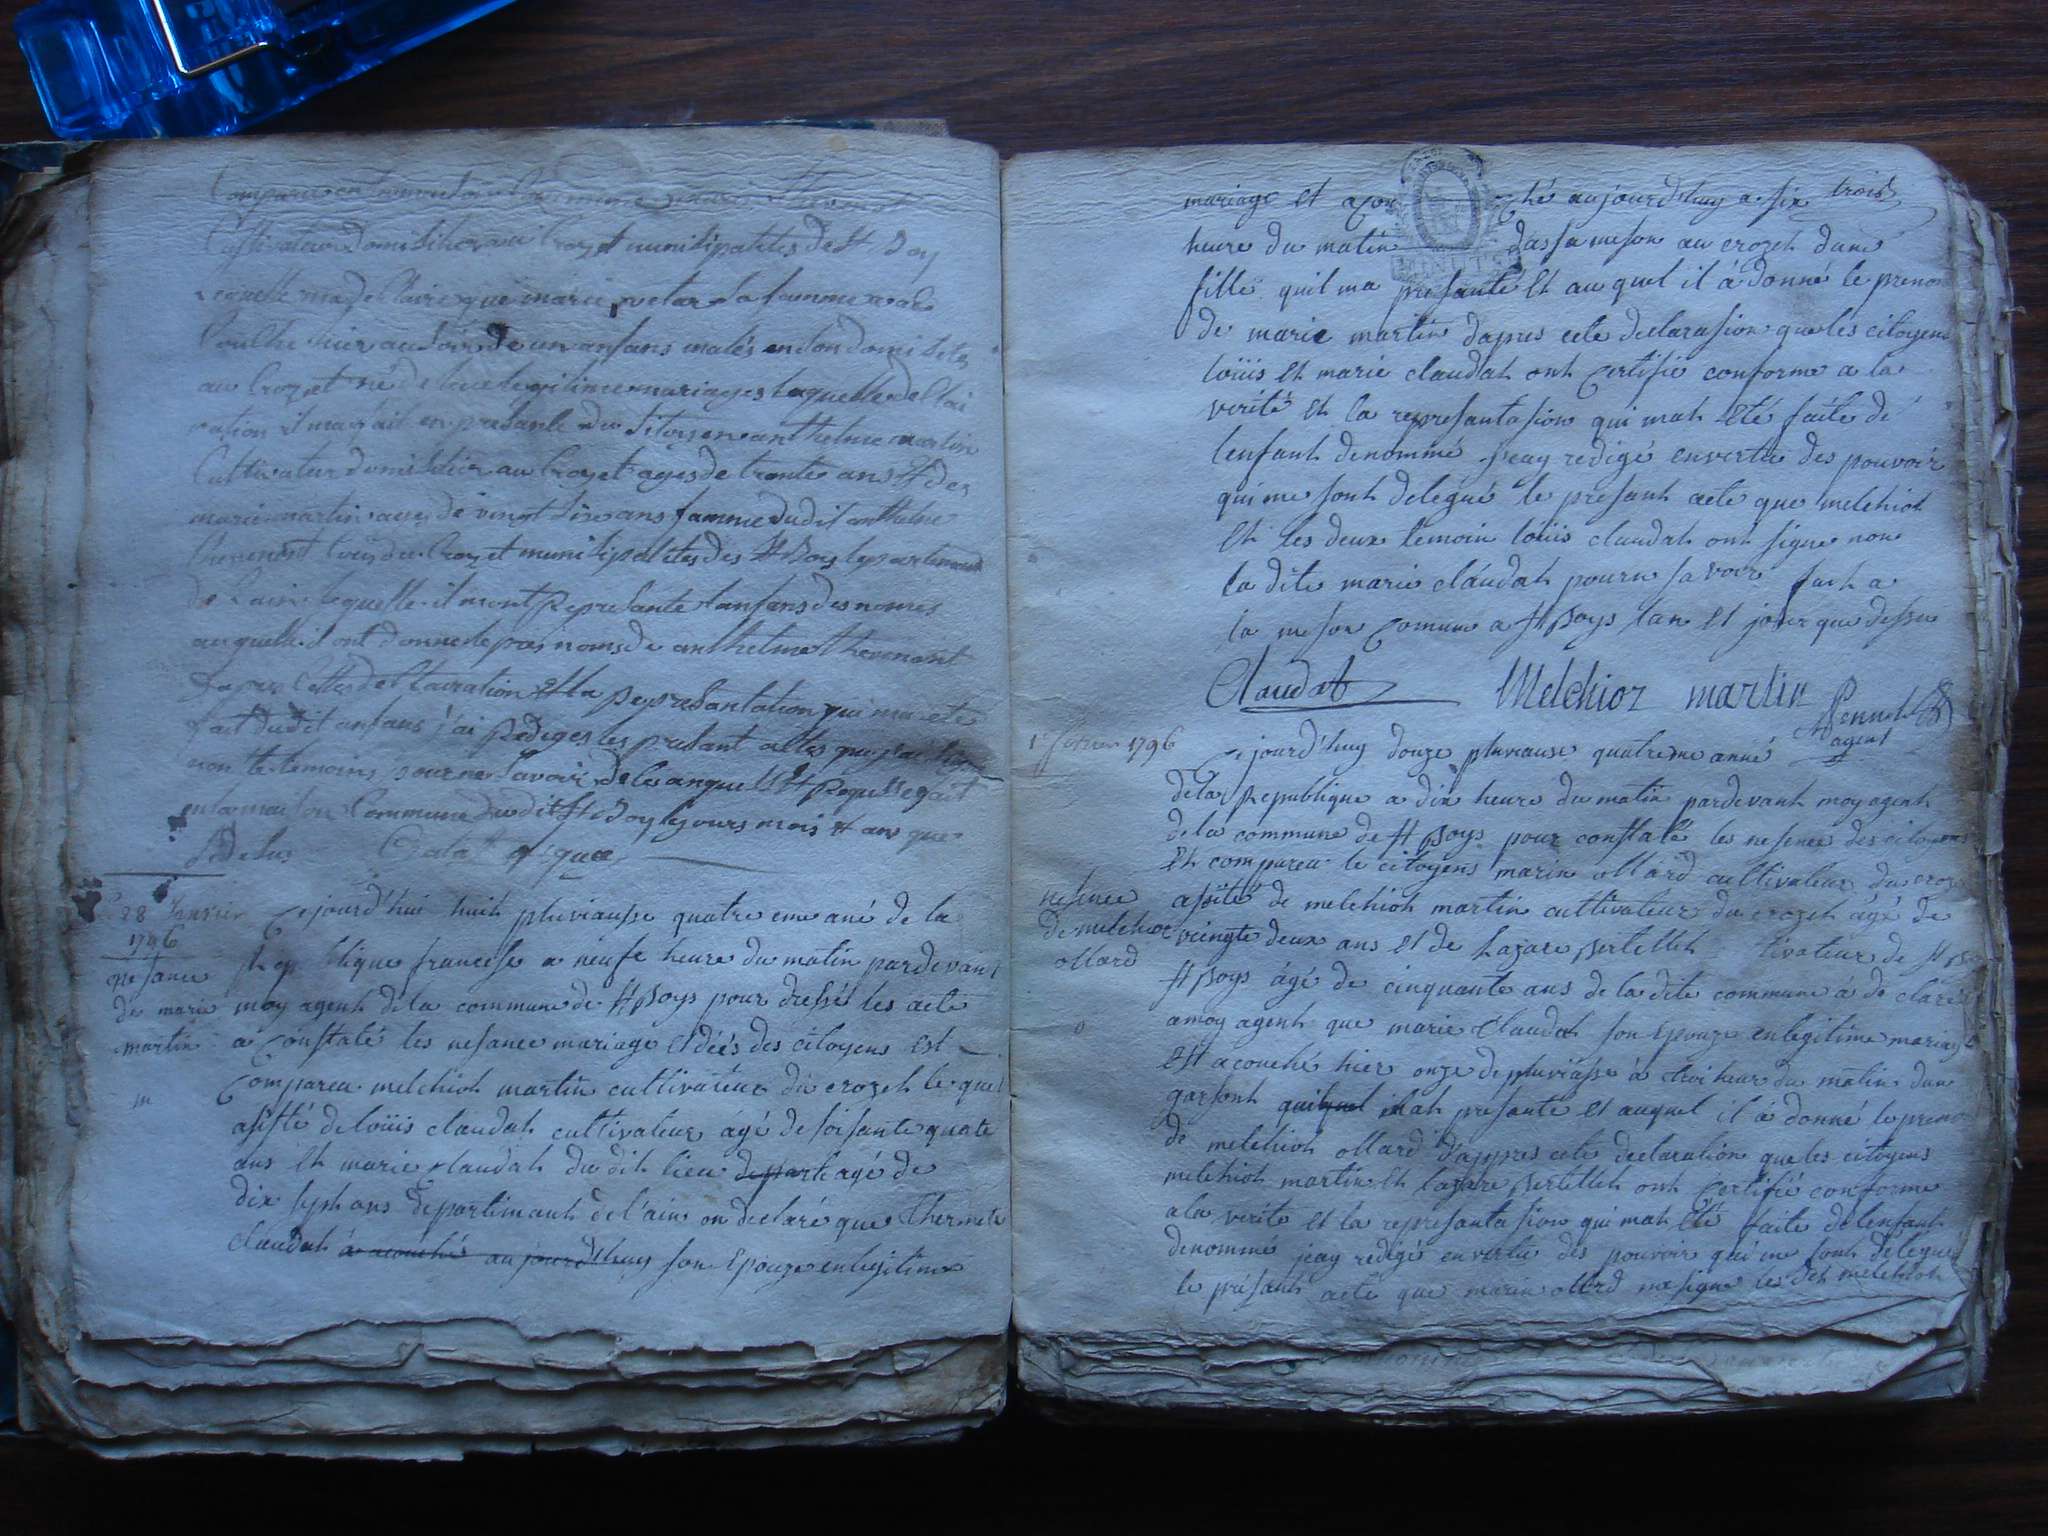 Cultivateur domicilier au Crozet municipalites de St Boy
Lequelle ma declaire que marie la famme
hier au soir de un anfans males en son domisile
au Crozet né de leur legitime mariages laquelle declai
ration il ma fait en presante du sitoyen anthelme martin
Cultivateur domicilier au Crozet ages de trante ans et de
marie martin ages de vingt ans famme dudit anthelme
Thevenont tous du Crozet municipalites des St Boy departement
de Lain lequelle il mont Represante lanfans des nomes
au quelle il ont donne le pres noms de anthelme thevenont
dapres cettes declairation et la Represantation qui ma ete
fait du dit anfans j'ai Rediges les presant actes que
non le temoins pour ne savoir de le anquel et Requis fait
en la maison Commune du dit St Boy les jours mois et an que
de desus
28 Janvier
1796
nesance
de marie
martin
Cejourd'hui huit pluviausse quatre eme ané de la
Republique francesse a neufe heure du matin pardevant
moy agent de la commune de St Boys pour dressé les acte
a constaté les nesance mariage et déés des citoyens est
Comparea melchioh martin cultivateur du crozeh le quel
asisté de loüis claudah cultivateur agé de soisante quate
ans eh marie claudah du dih lieu depart agé de
dix seph ans departimant de l'ain on declaré que
claudah a acouché aujourdhuy son Epouze en legitime
mariage et a couché aujourd'huy a six trois
heure du matin dassa meson au crozeh dune
fille quil ma presante et au quel il à donné le preno
de marie martin dapres cete declarasion que les citoyens
loüis et marie claudah ont Certifié conforme a la
verité et la represantasion qui mah été faite de
lenfant denommé jeay redigé envertu des pouvoir
qui me sont delegué le présant acte que melchioh
Et les deux temoin loüis claudah ont signe non
la dite marie claudah pour ne savoir fait a
la meson Comune a St Boys lan et jour que dessu
Claudat Melchior martin
agent
1 fevrier 1796
nesence
de melchior
ollard
Cejourd'huy douze pluviause quatreme anné
de la Republique a dix heure du matin pardevant moy agent
de la commune de St Boys pour constaté les nesence des citoyens
Et comparea le citoyens marin ollard cultivateur du croze
asisté de melchioh martin cultivateur du crozeh âgé de
veingte deux ans et de Lazare tivateur de St
St Boys âgé de cinquante ans de la dite commune à de clare
a moy agent que marie Claudah son Epouze en legitime mariage
est acouché hier onze de pluviasse à troi heur du matin dun
garsont quilquel ilah présante et auquel il à donné le preno
de melchioh ollard d'appres cete declaration que les citoyens
melchioh martin et lazare ont Certifié conforme
a la verite et la represantasion qui mah été faite de lenfant
denommé jeay redigé envertu des pouvoir qui me sont delegué
le présant acte que marin ollard melchioh